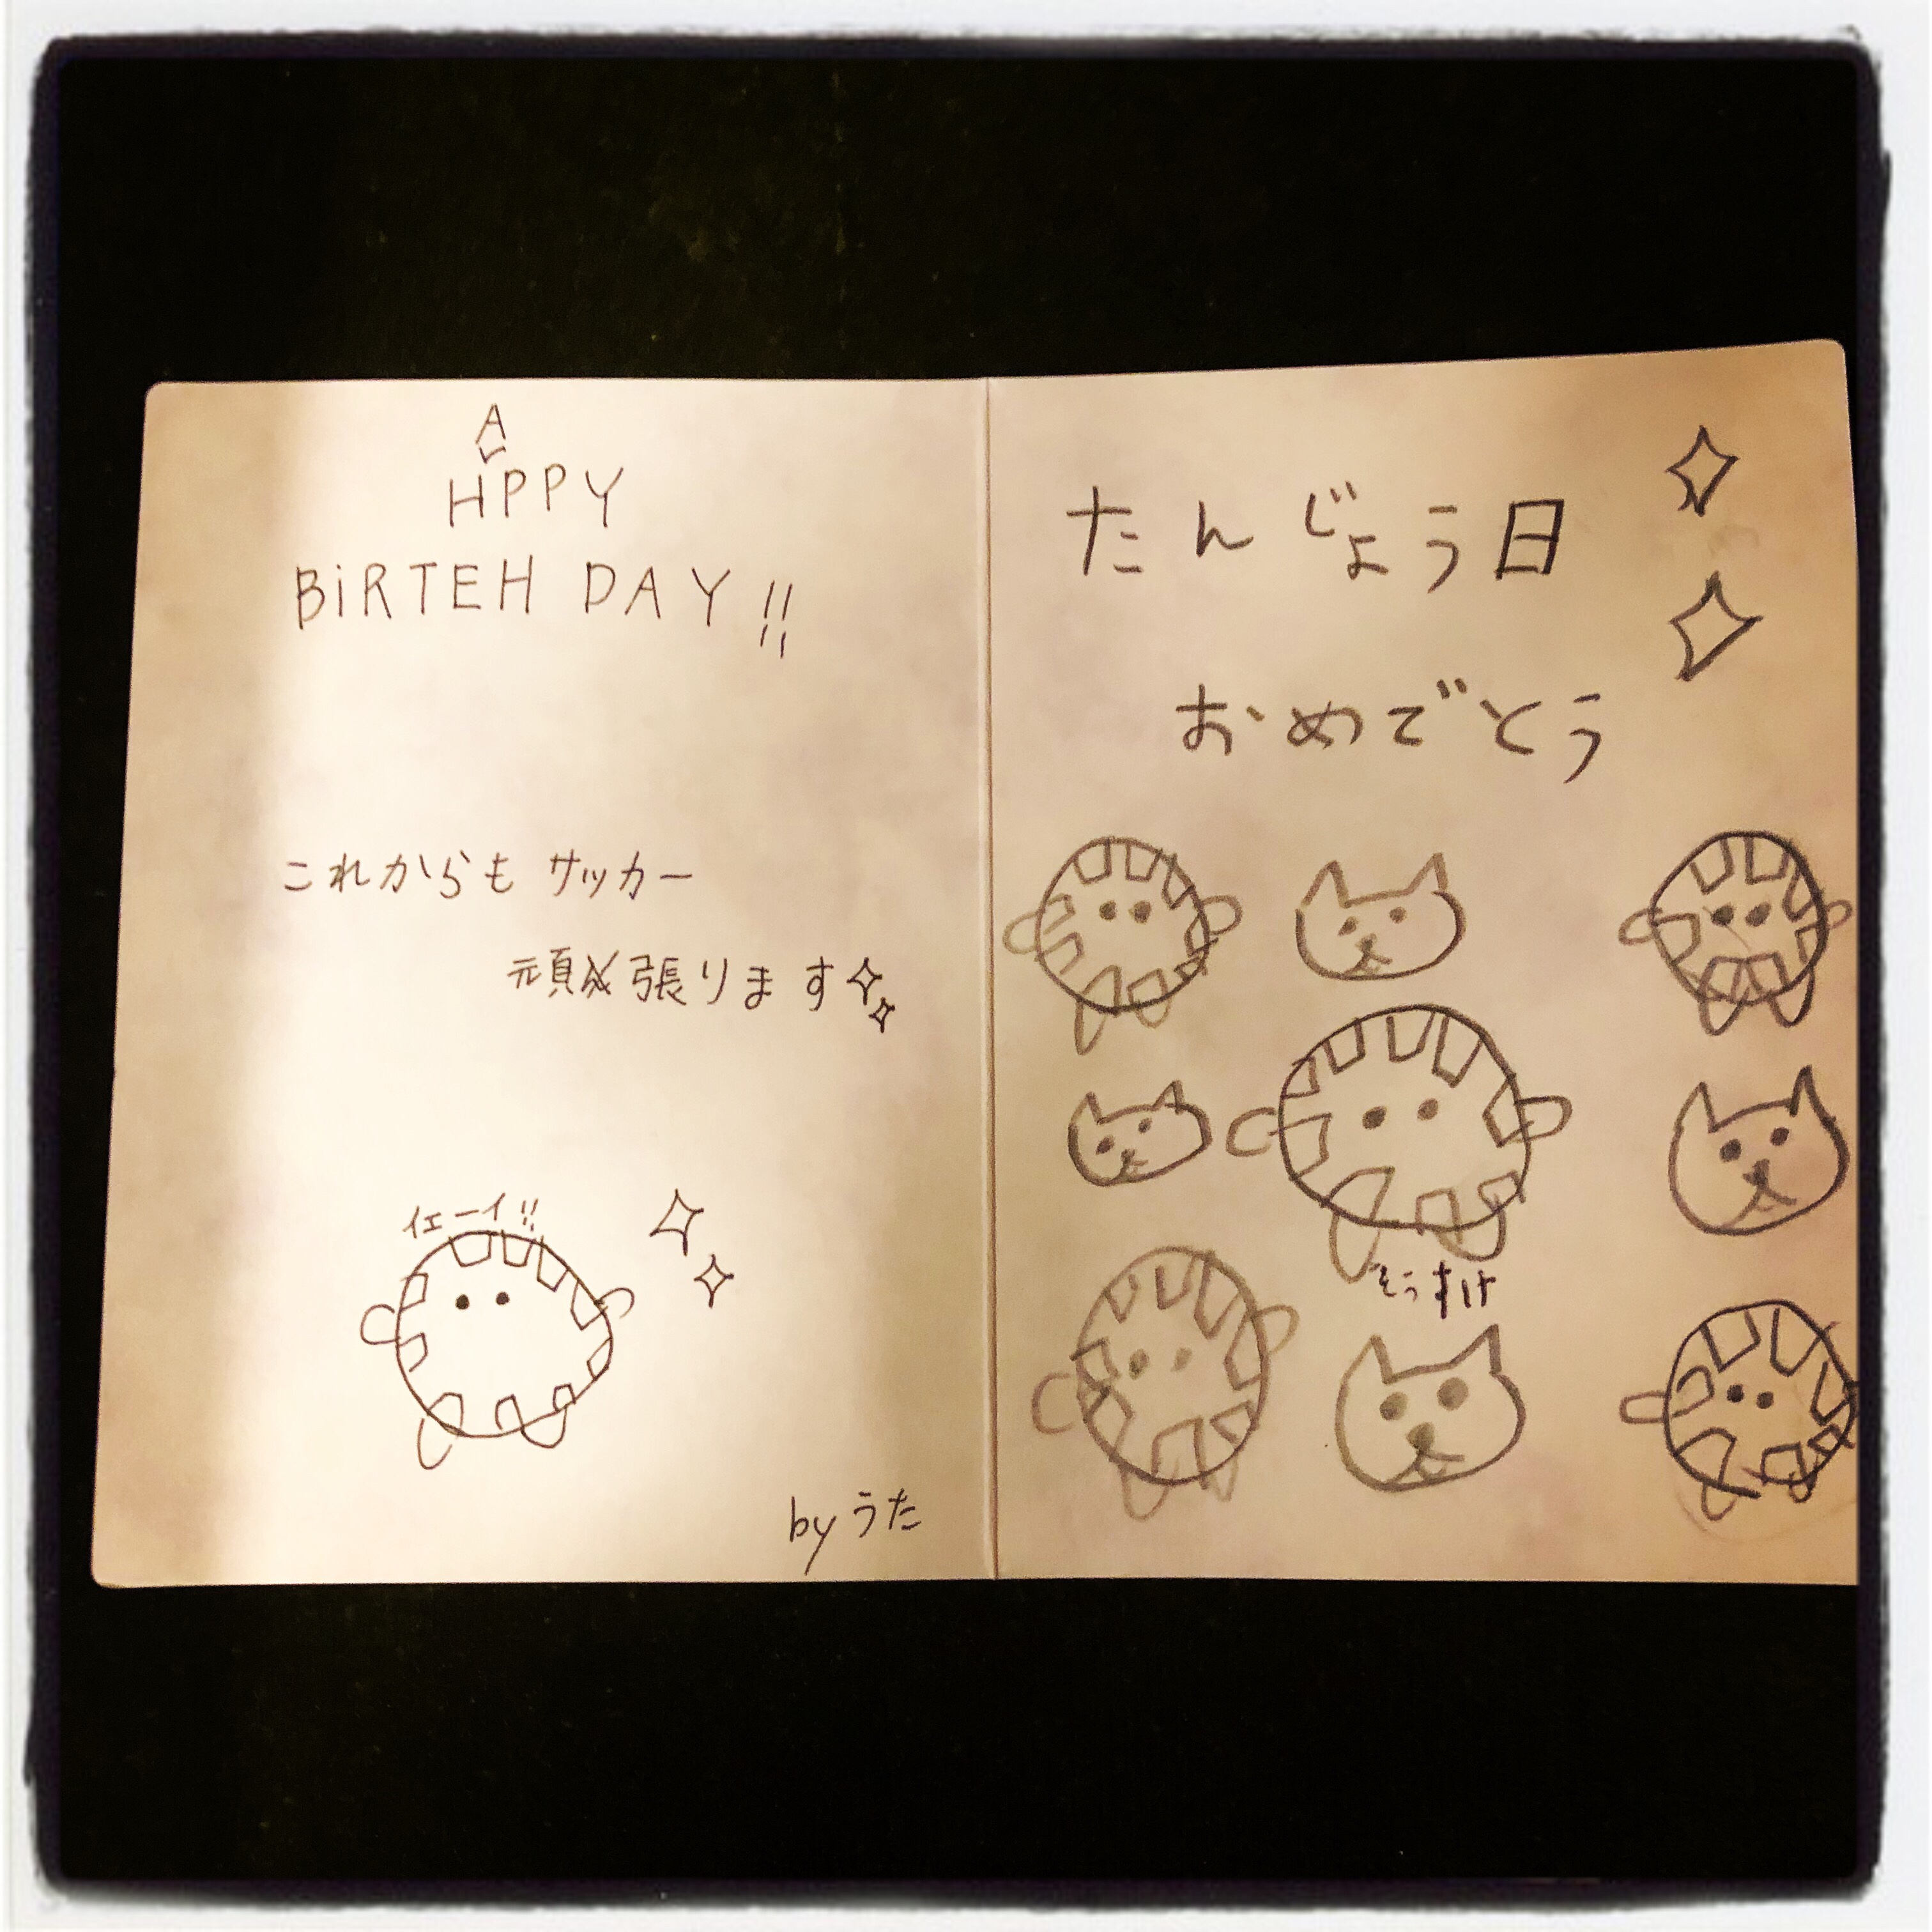 HAPPY
BiRTEH DAY!!
これからも サッカー
頑張ります
イェーイ!!
by うた
たんじょう日
おめでとう
そうすけ